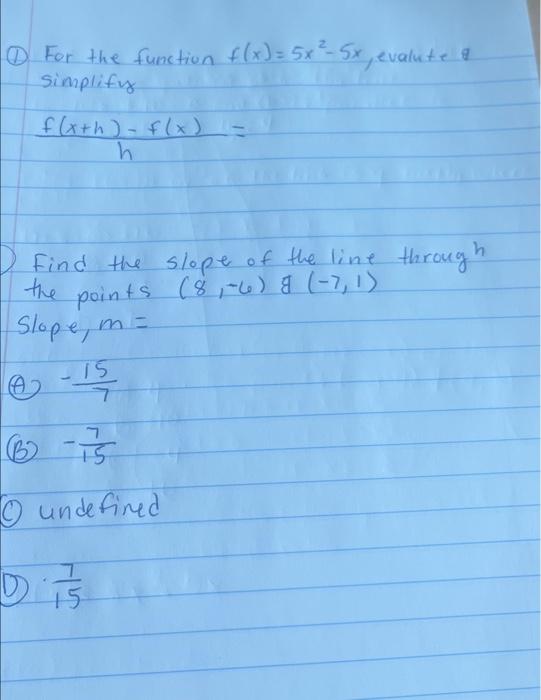 ① For the function f(x) = 5x² - 5x, evalute &
simplify
f(x+h) - f(x) =
h
Find the slope of the line through
the points (8, -6) & (-7, 1)
Slope, m =
Ⓐ - 15/7
Ⓑ - 7/15
Ⓒ undefined
Ⓓ 7/15